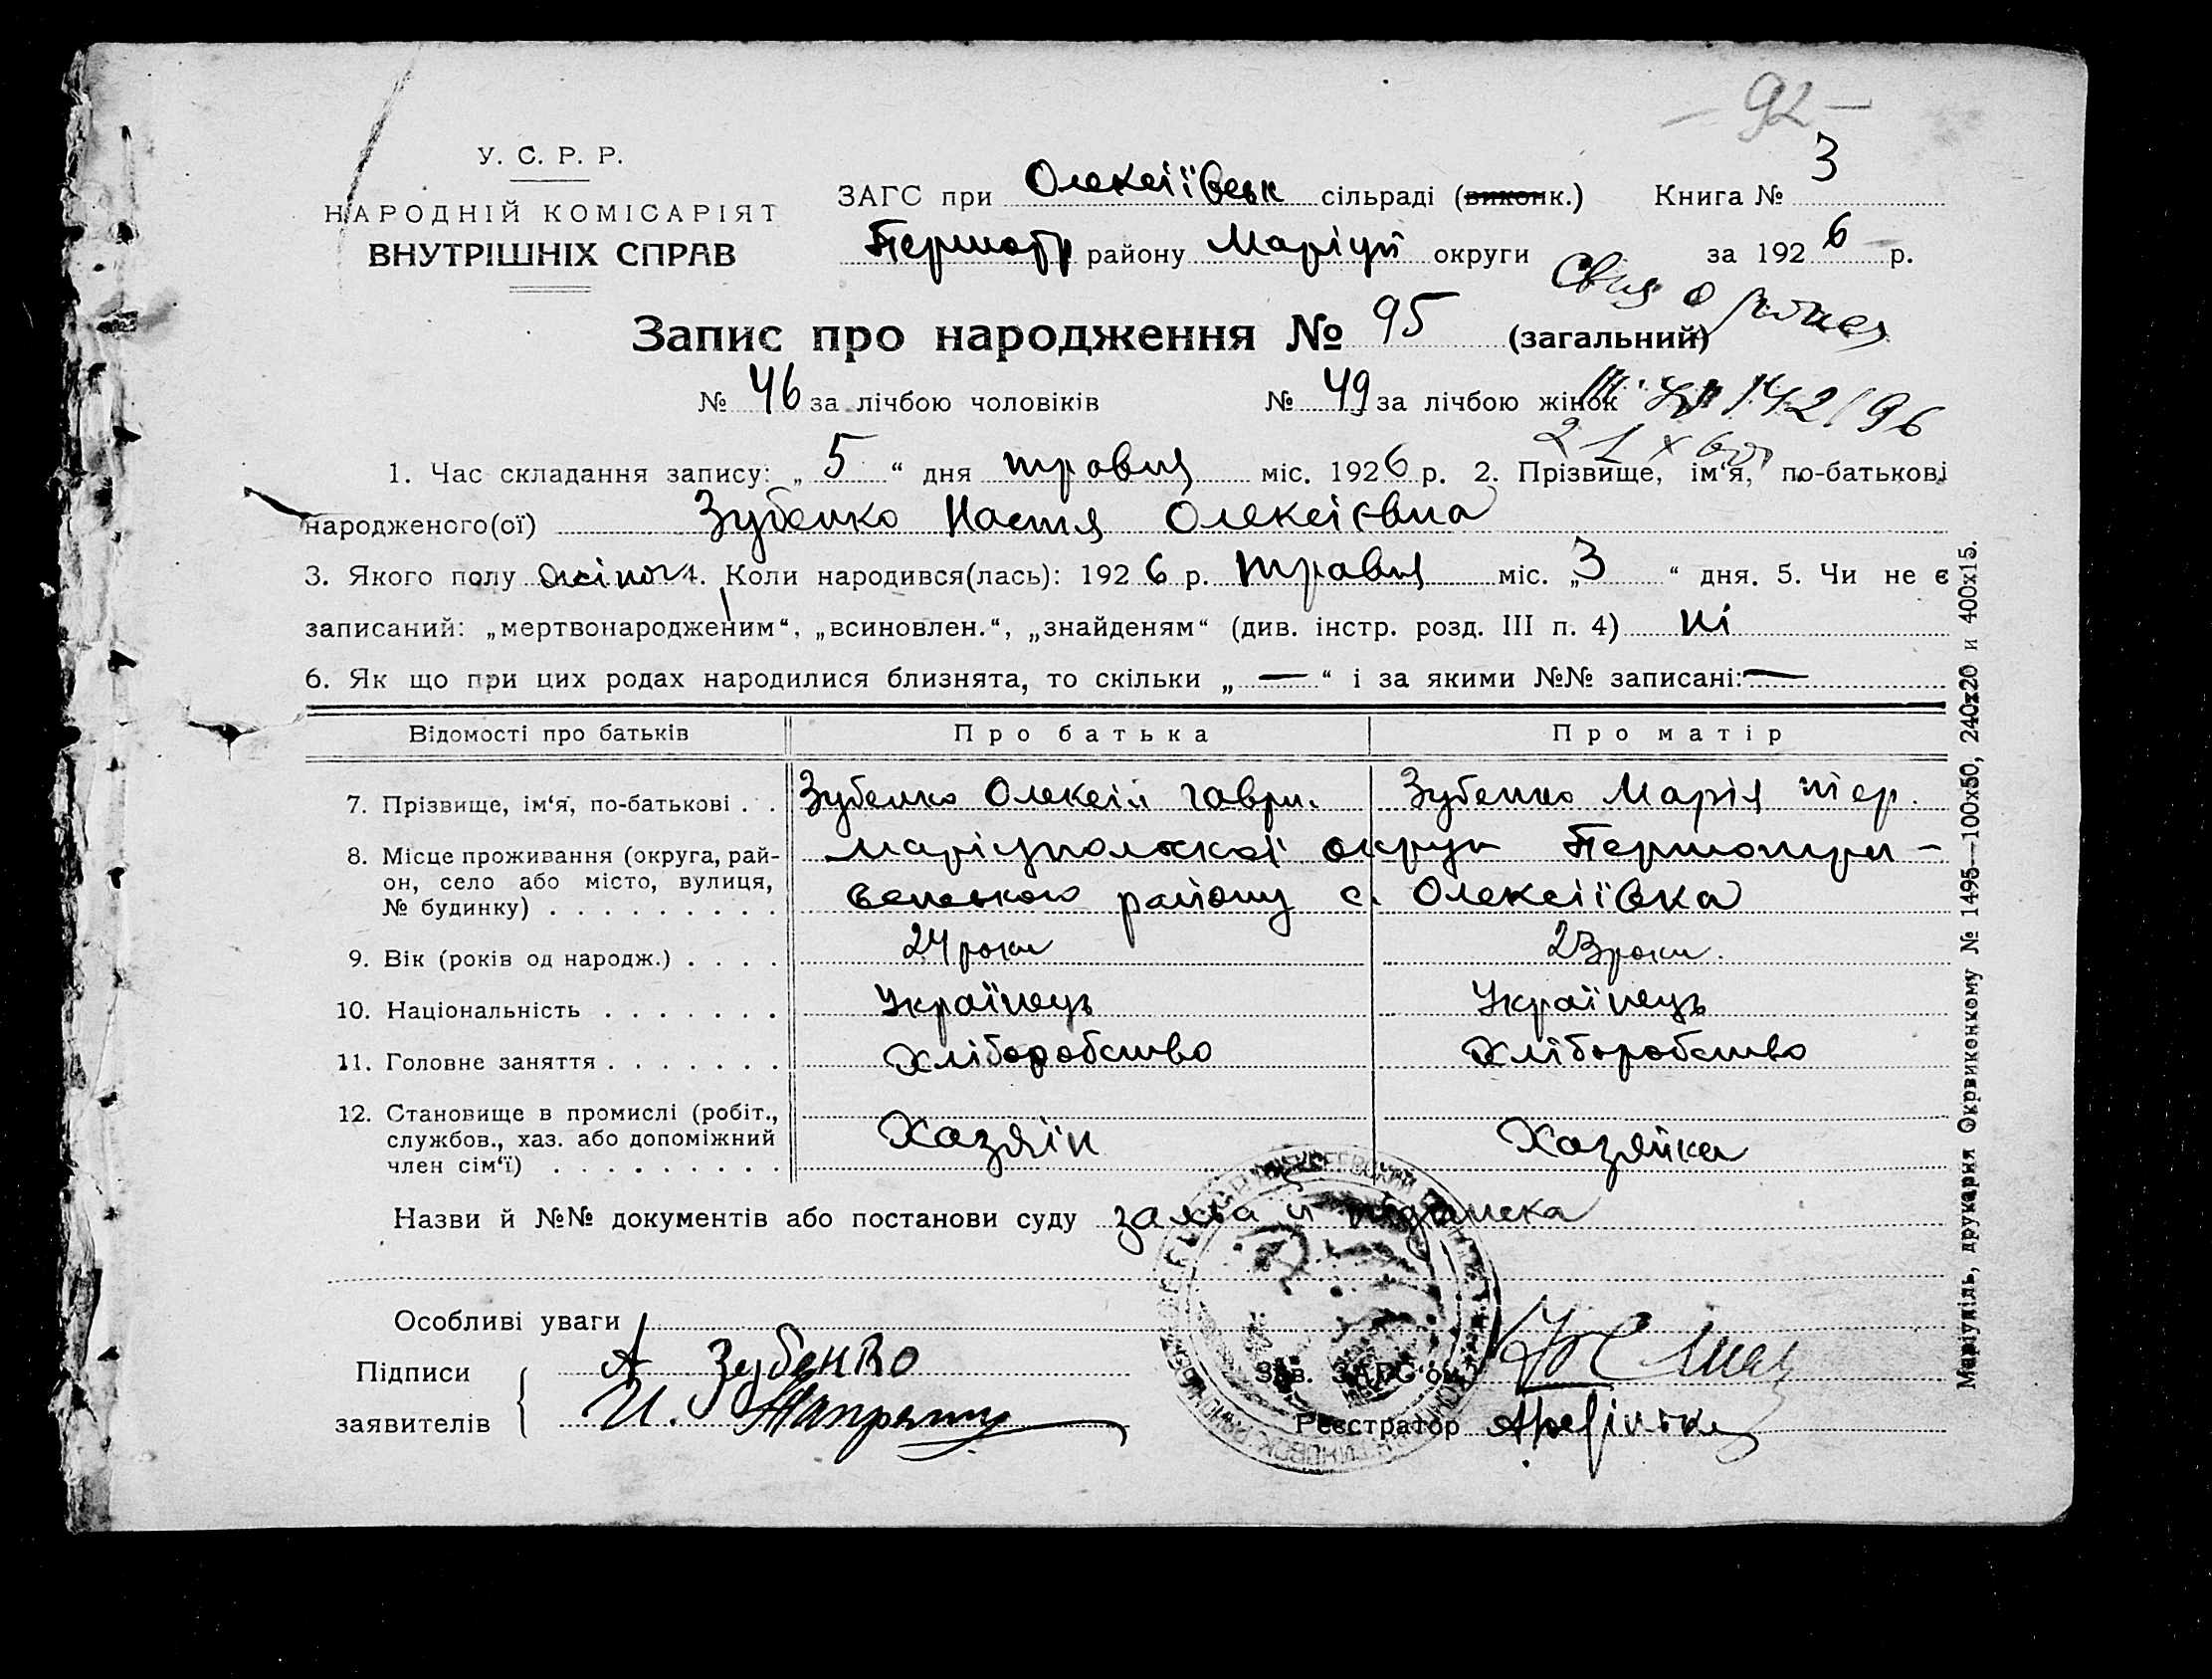 — 92 —
У. С. Р. Р.
НАРОДНІЙ КОМІСАРІЯТ
ВНУТРІШНІХ СПРАВ
ЗАГС при Олексіївськ сільраді (виконк.) Книга № 3
району Маріуп округи за 1926 р.
Запис про народження № 95 (загальний)
№ 46 за лічбою чоловіків № 49 за лічбою жінок
1. Час складання запису: „5“ дня травня міс. 1926 р. 2. Прізвище, ім‘я, по-батькові
народженого(ої) Зубенко Настя Олексієвна
3. Якого полу жіноч 4. Коли народився(лась): 1926 р. травня міс. „3“ дня. 5. Чи не є
записаний: „мертвонародженим“, „всиновлен.“, „знайденям“ (див. інстр. розд. III п. 4) ні
6. Як що при цих родах народилися близнята, то скільки „—“ і за якими №№ записані: —
Відомості про батьків Про батька Про матір
7. Прізвище, ім‘я, по-батькові . . Зубенко Олексій Гаври. Зубенко Марія
8. Місце проживання (округа, рай-
он, село або місто, вулиця,
№ будинку) . . . . . . . . .
Маріупольскої округи Першотри-
венського району с. Олексіївка
9. Вік (років од народж.) . . . . 24 роки 23 роки.
10. Національність . . . . . . . Українець Українець
11. Головне заняття . . . . . . . Хліборобство Хліборобство
12. Становище в промислі (робіт.,
службов., хаз. або допоміжний
член сім‘ї) . . . . . . . . .
Хазяїн Хазяйка
Назви й №№ документів або постанови суду заява й підписка
Особливі уваги
Підписи
заявителів
А Зубенко
И.
Зав. ЗАГС‘ом
Реєстратор
Маріупіль, друкарня Окрвиконкому № 1495—100х50, 240х20 и 400х15.